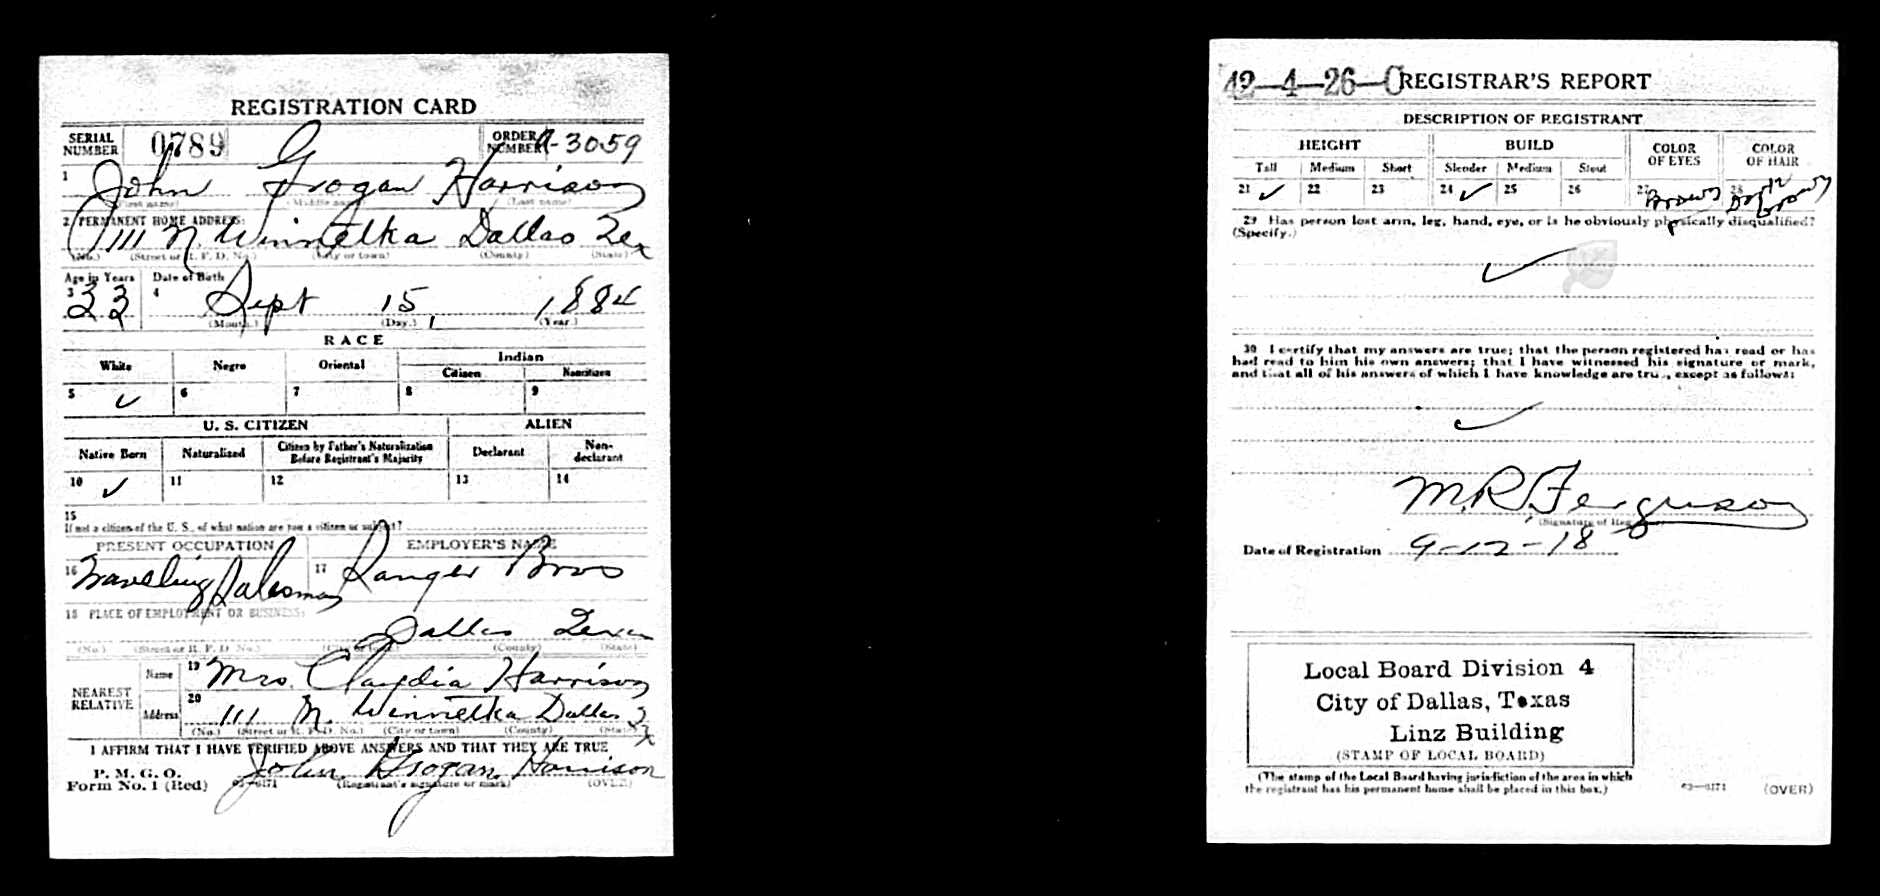 REGISTRATION CARD
SERIAL NUMBER 0789 ORDER NUMBER A-3059
1 John Grogan Harrison
(First name) (Middle name) (Last name)
2 PERMANENT HOME ADDRESS:
111 N. Winnetka Dallas Tex
(No.) (Street or R. F. D. No.) (City or town) (County) (State)
Age in Years Date of Birth
3 33 4 Sept 15, 1884
(Month.) (Day.) (Year.)
RACE
White Negro Oriental Indian
Citizen Noncitizen
5 ✓ 6 7 8 9
U. S. CITIZEN ALIEN
Native Born Naturalized Citizen by Father's Naturalization Before Registrant's Majority Declarant Non-declarant
10 ✓ 11 12 13 14
15
If not a citizen of the U. S., of what nation are you a citizen or subject?
PRESENT OCCUPATION EMPLOYER'S NAME
16 Traveling Salesman 17 Sanger Bros
18 PLACE OF EMPLOYMENT OR BUSINESS:
Dallas Texas
(No.) (Street or R. F. D. No.) (City or town) (County) (State)
NEAREST RELATIVE Name 19 Mrs. Claudia Harrison
Address 20 111 N. Winnetka Dallas Tx
(No.) (Street or R. F. D. No.) (City or town) (County) (State)
I AFFIRM THAT I HAVE VERIFIED ABOVE ANSWERS AND THAT THEY ARE TRUE
P. M. G. O.
Form No. 1 (Red) 03—6171 John Grogan Harrison
(Registrant's signature or mark) (OVER)
42—4—26—C REGISTRAR'S REPORT
DESCRIPTION OF REGISTRANT
HEIGHT BUILD COLOR OF EYES COLOR OF HAIR
Tall Medium Short Slender Medium Stout
21 ✓ 22 23 24 ✓ 25 26 27 Brown 28 Dark Brown
29 Has person lost arm, leg, hand, eye, or is he obviously physically disqualified?
(Specify.)
✓
30 I certify that my answers are true; that the person registered has read or has
had read to him his own answers; that I have witnessed his signature or mark,
and that all of his answers of which I have knowledge are true, except as follows:
✓
M.R. Ferguson
(Signature of Reg
Date of Registration 9-12-18
Local Board Division 4
City of Dallas, Texas
Linz Building
(STAMP OF LOCAL BOARD)
(The stamp of the Local Board having jurisdiction of the area in which
the registrant has his permanent home shall be placed in this box.)
03—6171 (OVER)